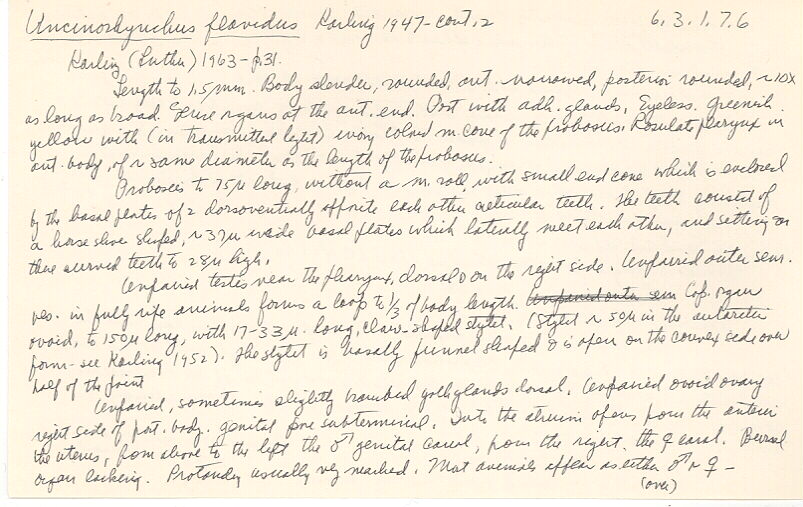 Uncinorhynchus flavidus Karling 1947-cont. 2 6.3.1.7.6
Karling (Luther) 1963-p31.
Length to 1.5mm. Body slender, rounded, ant. narrowed, posterior rounded, ~10x
as long as broad. at the ant. end. Post with adh. glands. Eyeless. Greenish
yellow with (in transmitted light) ivory colored m. cone of the proboscis. Rosulate pharynx in
ant. body, of ~ same diameter as the length of the proboscis.
Proboscis to 75µ long, without a m. roll with small end cone which is enclosed
by the basal plates of 2 dorsoventrally opposite each other cuticular teeth. The teeth consist of
a horse shoe shaped, ~37µ wide basal plates which laterally meet each other, and setting on
these curved teeth to 28µ high.
Unpaired testes near the pharynx, dorsal & on the right side. Unpaired outer sem.
ves. in fully ripe animals forms a loop to 1/3 of body length. Unpaired outer sem Cop. organ
ovoid, to 150µ long, with 17-33µ long, claw-shaped stylet. (Stylet ~ 50µ in the antarctic
form - see Karling 1952). The stylet is basally funnel shaped & is open on the convex side over
half of the
Unpaired, sometimes slightly branched yolkglands dorsal. Unpaired ovoid ovary
right side of post. body. Genital pore subterminal. Into the atrium opens from the anterior
the uterus, from above to the left the ♂ genital canal, from the right, the ♀ canal. Bursal
organ lacking. Protandry usually very marked. Most animals appear as either ♂ or ♀ -
(over)